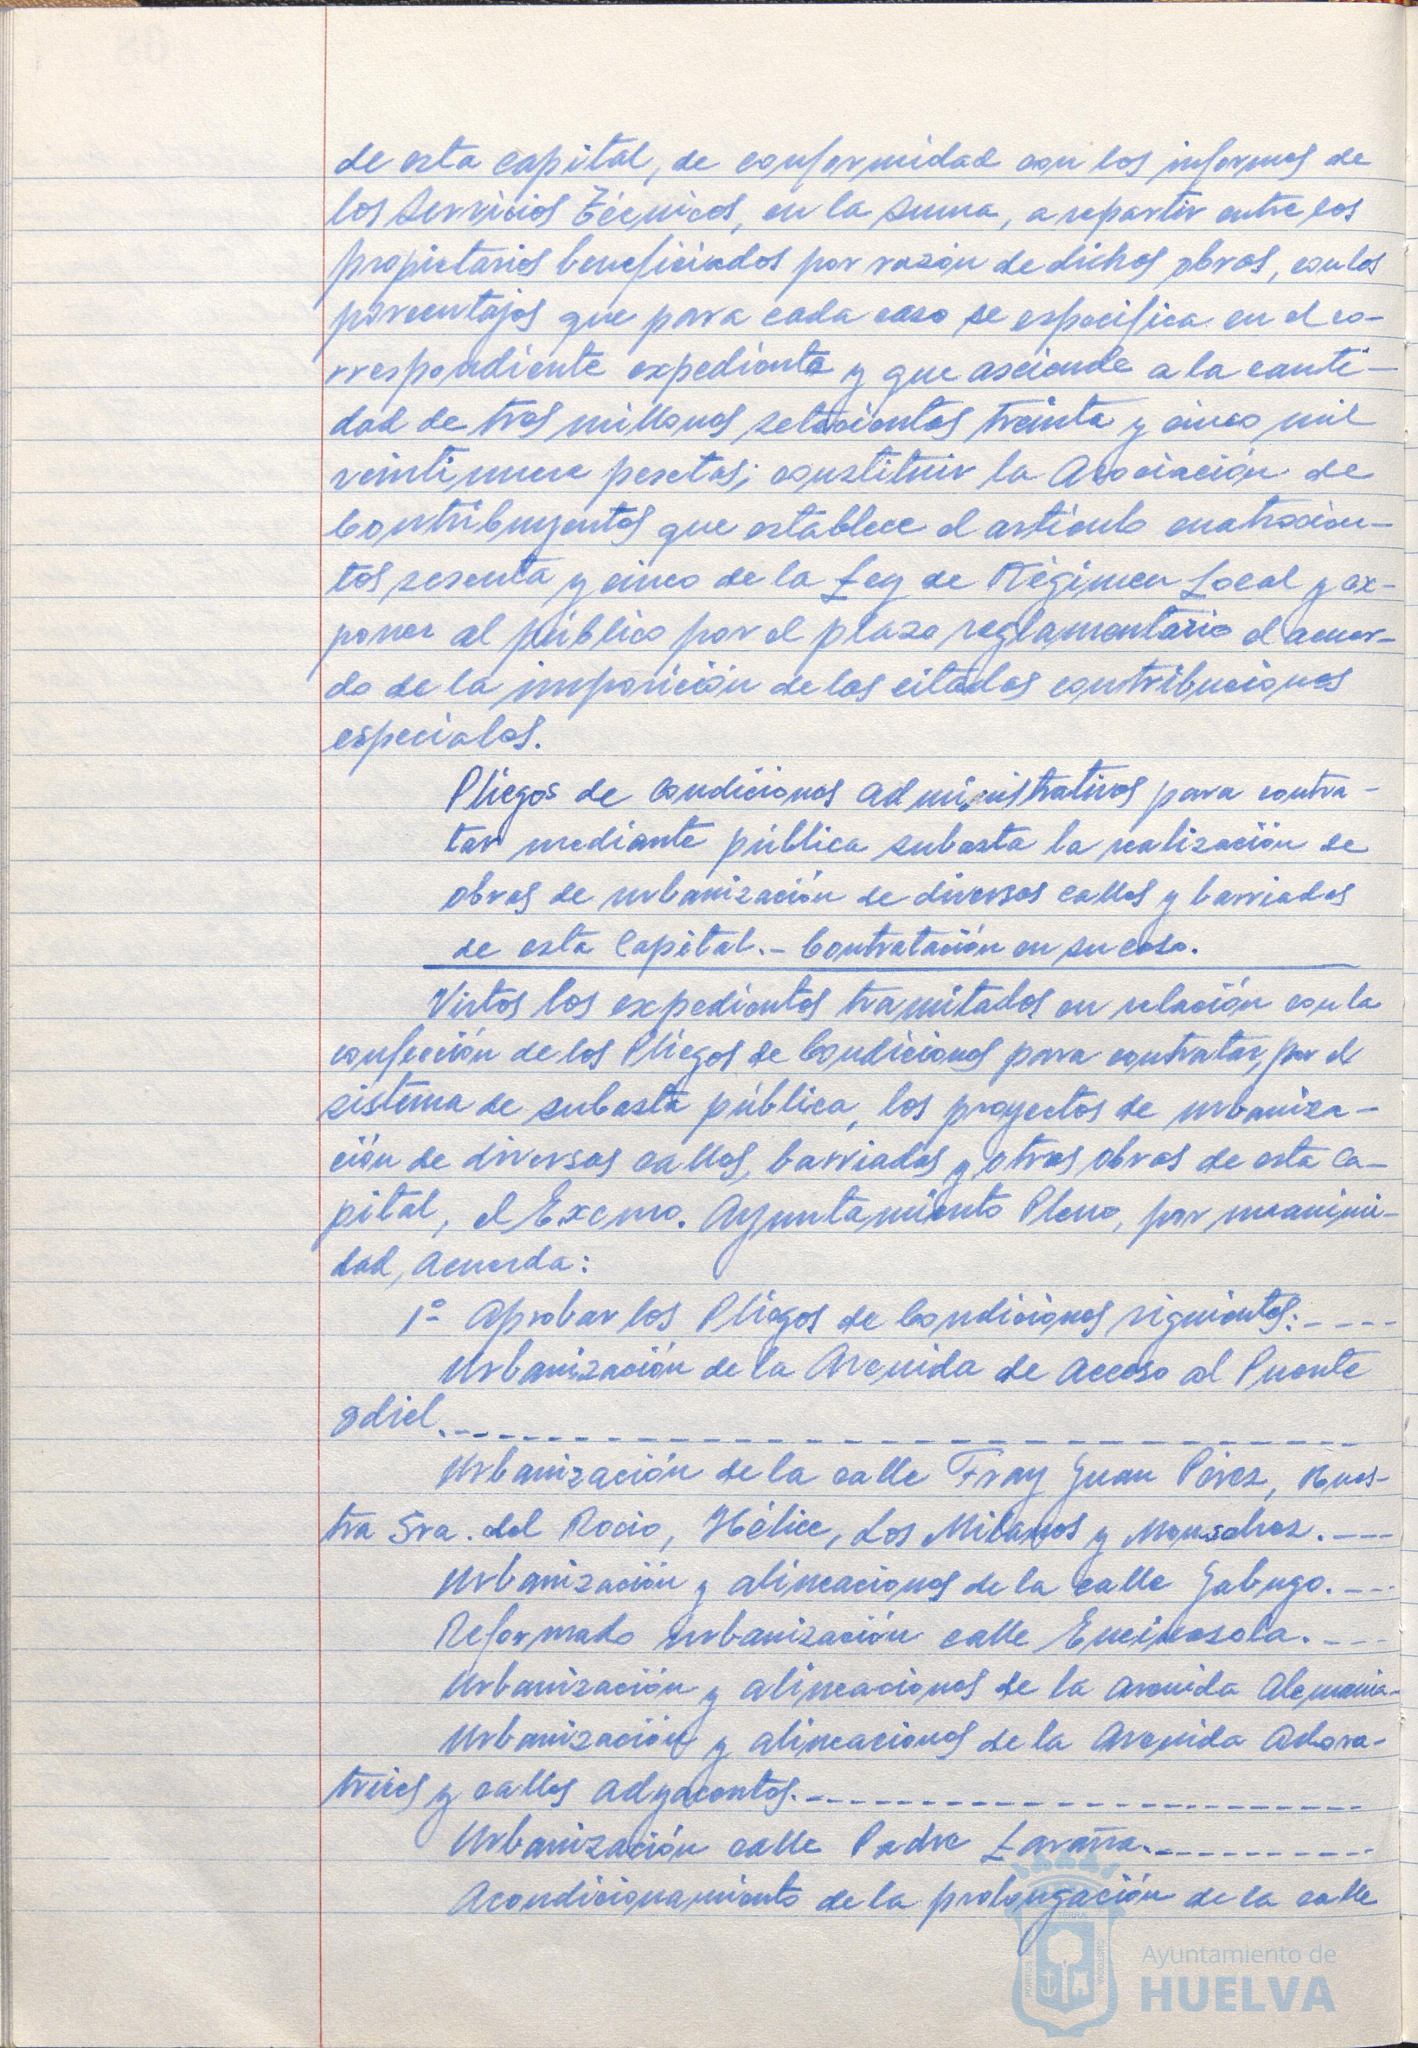 de esta capital, de conformidad con los informes de
los Servicios Técnicos, en la suma, a repartir entre los
propietarios beneficiados por razón de dichas obras, con los
porcentajes que para cada caso se especifica en el co-
rrespondiente expediente y que asciende a la canti-
dad de tres millones setecientas treinta y cinco mil
veintinueve pesetas; constituir la Asociación de
Contribuyentes que establece el artículo cuatrocien-
tos sesenta y cinco de la Ley de Régimen Local y ex-
poner al público por el plazo reglamentario el acuer-
do de la imposición de las citadas contribuciones
especiales.
Pliegos de Condiciones administrativas para contra-
tar mediante pública subasta la realización de
obras de urbanización de diversas calles y barriadas
de esta Capital.- Contratación en su caso.
Vistos los expedientes tramitados en relación con la
confección de los Pliegos de Condiciones para contratar, por el
sistema de subasta pública, los proyectos de urbaniza-
ción de diversas calles, barriadas y otras obras de esta Ca-
pital, el Excmo. Ayuntamiento Pleno, por unanimi-
dad, Acuerda:
1º Aprobar los Pliegos de Condiciones siguientes:----
Urbanización de la Avenida de Acceso al Puente
Odiel.
Urbanización de la calle Fray Juan Pérez, Nues-
tra Sra. del Rocio, Hélice, Los Milanos y Monsalvez.---
Urbanización y alineaciones de la calle Jabugo.---
Reformado urbanización calle Encinasola.---
Urbanización y alineaciones de la avenida Alemania-
Urbanización y alineaciones de la Avenida Adora-
trices y calles adyacentes.
Urbanización calle Padre Laraña.
Acondicionamiento de la prolongación de la calle
Ayuntamiento de
HUELVA